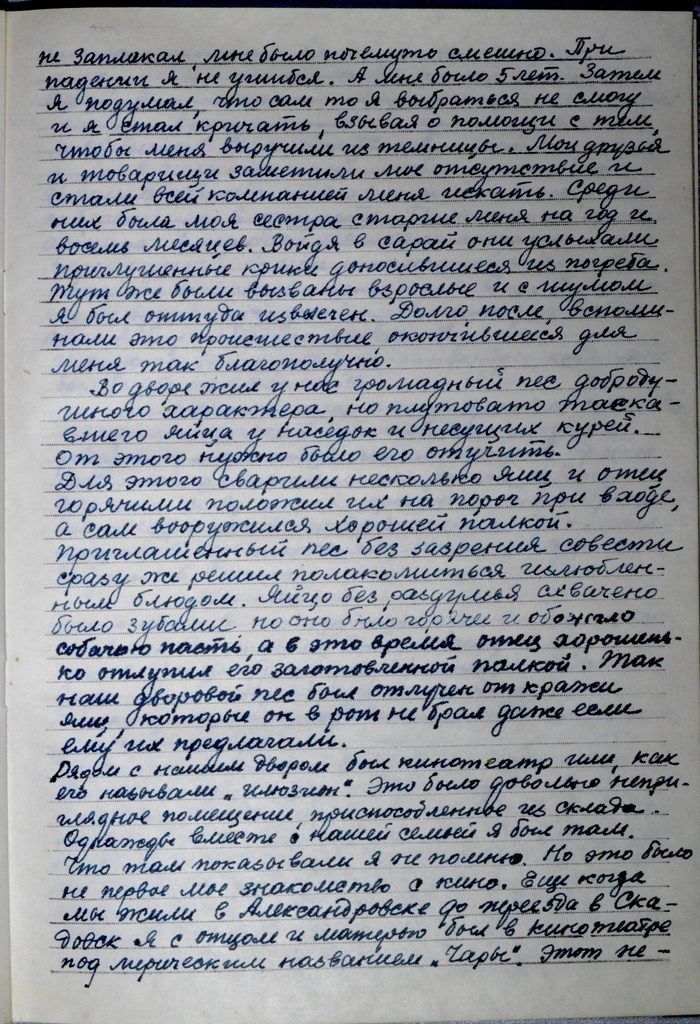 не заплакал, мне было почемуто смешно. При
падении я не ушибся. А мне было 5 лет. Затем
я подумал, что сам то я выбраться не смогу
и я стал кричать, взывая о помощи с тем,
чтобы меня выручили из темницы. Мои друзья
и товарищи заметили мое отсутствие и
стали всей компанией меня искать. Среди
них была моя сестра старше меня на год и
восемь месяцев. Войдя в сарай они услыхали
приглушенные крики доносившиеся из погреба.
Тут же были вызваны взрослые и с шумом
я был оттуда извлечен. Долго после, вспоми-
нали это происшествие окончившееся для
меня так благополучно.
Во дворе жил у нас громадный пес доброду-
шного характера, но плутовато таска-
вшего яйца у наседок и несущих курей.
От этого нужно было его отучить.
Для этого сварили несколько яиц и отец
горячими положил их на порог при входе,
а сам вооружился хорошей палкой.
Приглашенный пес без зазрения совести
сразу же решил полакомиться излюблен-
ным блюдом. Яйцо без раздумья схвачено
было зубами но оно было горячее и обожгло
собачью пасть, а в это время отец хорошень-
ко отлупил его заготовленной палкой. Так
наш дворовой пес был отлучен от кражи
яиц, которые он в рот не брал даже если
ему их предлагали.
Рядом с нашим двором был кинотеатр или, как
его называли „илюзион". Это было довольно непри-
глядное помещение, приспособленное из склада.
Однажды вместе с нашей семьей я был там.
Что там показывали я не помню. Но это было
не первое мое знакомство с кино. Еще когда
мы жили в Александровске до переезда в Ска-
довск я с отцом и матерью был в кинотеатре
под лирическим названием „Чары". Этот не-